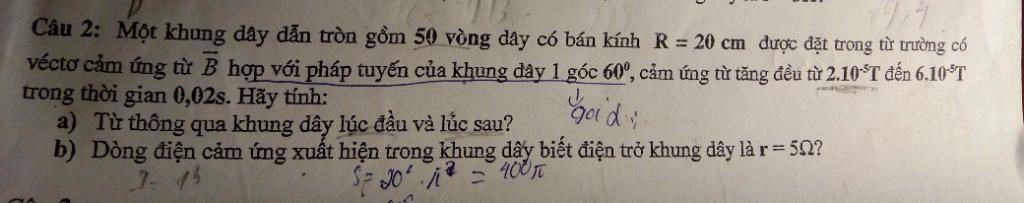 Câu 2: Một khung dây dẫn tròn gồm 50 vòng dây có bán kính R = 20 cm được đặt trong từ trường có
véctơ cảm ứng từ B hợp với pháp tuyến của khung dây 1 góc 60⁰, cảm ứng từ tăng đều từ 2.10⁻⁵T đến 6.10⁻⁵T
trong thời gian 0,02s. Hãy tính:
a) Từ thông qua khung dây lúc đầu và lúc sau?
b) Dòng điện cảm ứng xuất hiện trong khung dây biết điện trở khung dây là r = 5Ω?
= 400π